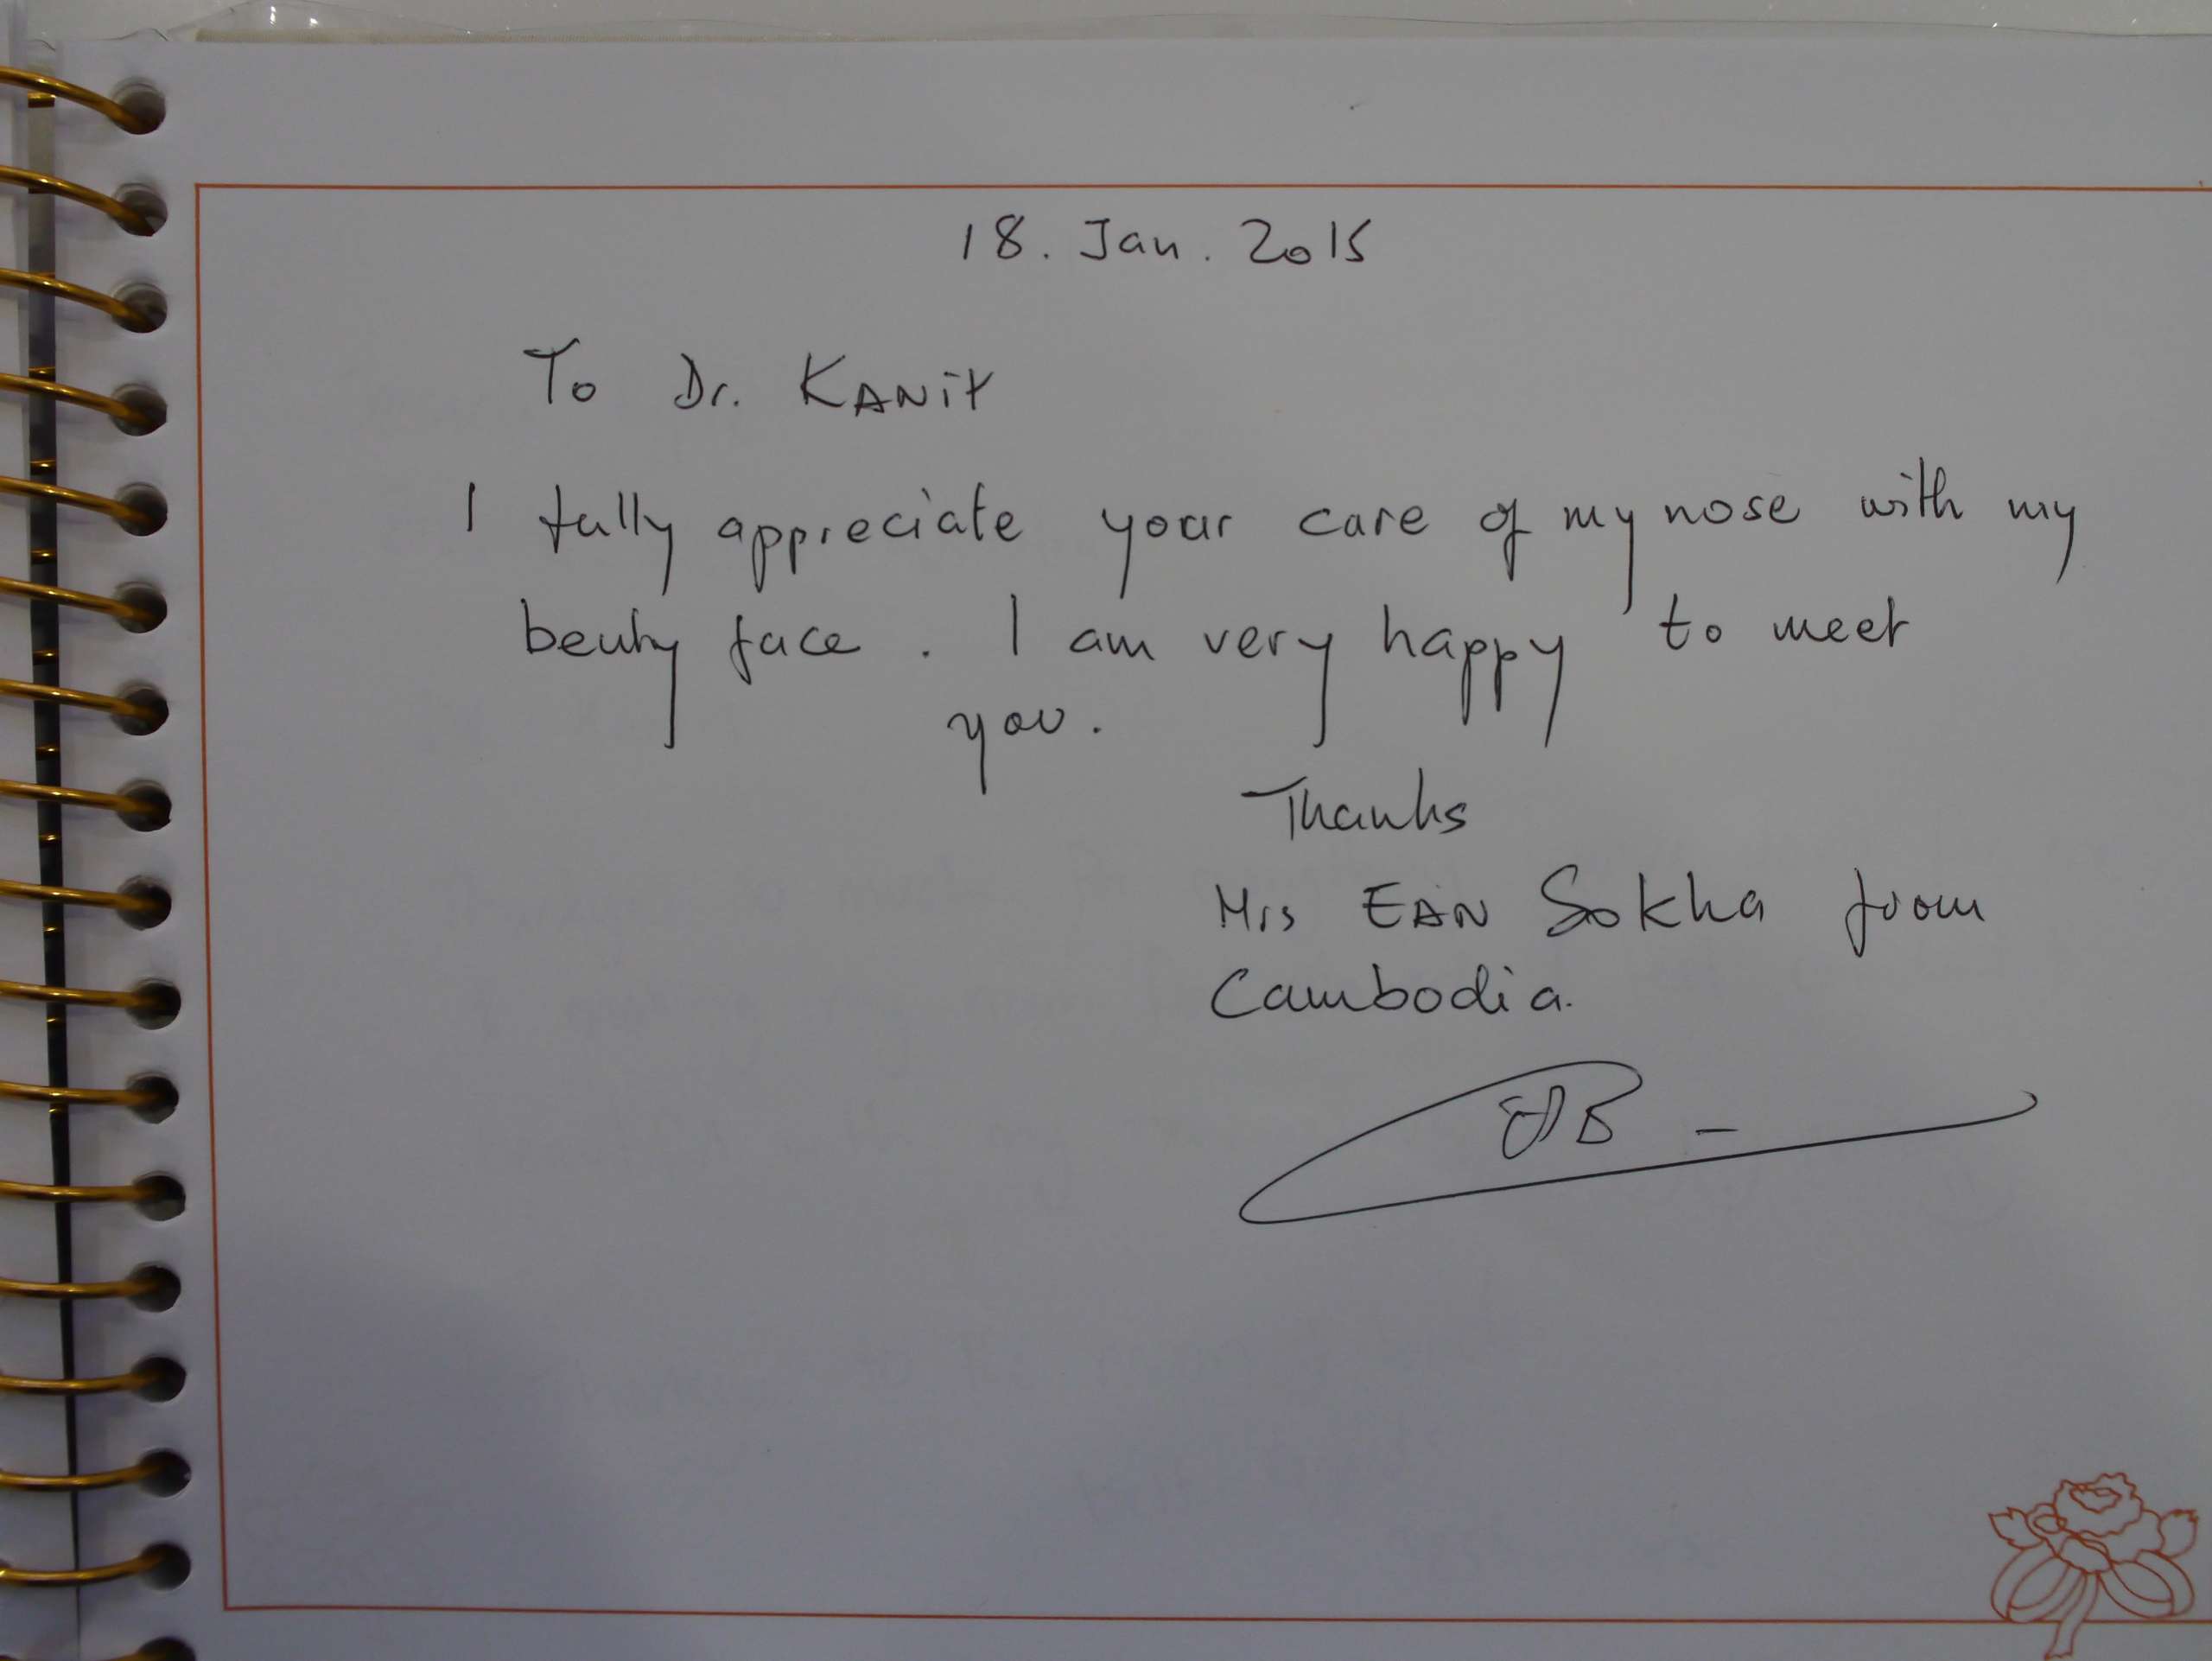 18. Jan. 2015
To Dr. KANit
I fully appreciate your care of my nose with my
beuty face. I am very happy to meet
you.
Thanks
Mrs EAN Sokha from
Cambodia.